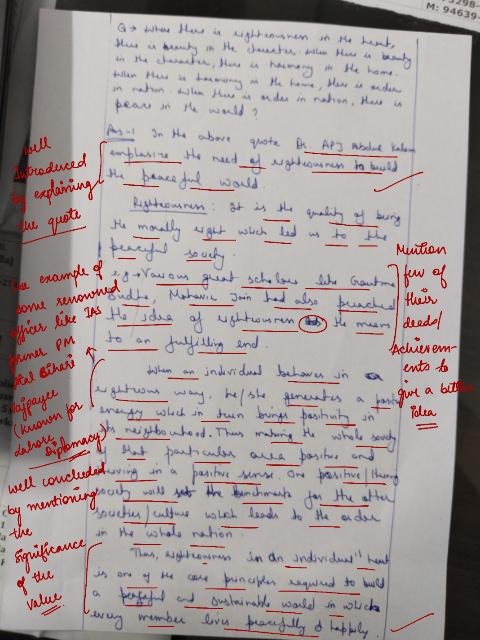 3298-
M: 94639-
Q → Where there is righteousness in the heart,
there is beauty in the character. When there is beauty
in the character, there is harmony in the home.
When there is harmony in the home, there is order
in nation. When there is order in nation, there is
peace in the world?
Ans-1 In the above quote Dr. APJ Abdul Kalam
emphasize the need of righteousness to build
the peaceful world.
Righteousness: It is the quality of being
the morally right which led us to the
peaceful society.
e.g → Various great scholars like Gautma
Budha, Mahavir Jain had also preached
the idea of righteousness the means
to an fulfilling end.
When an individual behaves in a
righteous way, he/she generates a positive
energy which in turn brings positivity in
its neighbourhood. Thus making the whole society
of that particular area positive and
in a positive sense. One positive/
society will set the benchmarks for the other
societies/culture which leads to the order
in the whole nation.
Thus, righteousness in an individual's heart
is one of the core principles required to build
a peaceful and sustainable world in which
every member lives peacefully & happily.
Well
Introduced
by explaining
the quote
example of
some renowned
officer like IAS
former PM
Bihari
Vajpayee
(known for
Lahore
Diplomacy)
well concluded
by mentioning
the
significance
of the
value
Mention
few of
their
deeds/
Achievem-
ents to
give a better
Idea